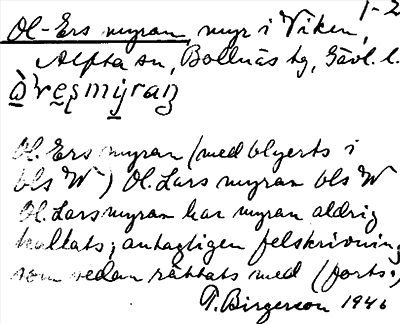 1-2
Ol-Ers myran, myr i Viken,
Alfta sn, Bollnäs tg, Gävl. l.
Ol. Ers myran (med blyerts i
bls W) Ol. Lars myran bls W
Ol. Larsmyran har myran aldrig
kallats; antagligen felskrivning
som sedan rättats med (forts.)
T. Birgerson 1946